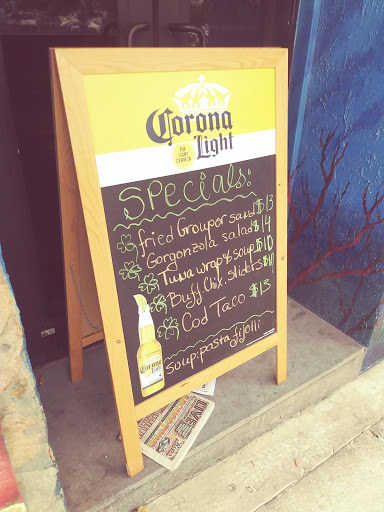 Corona
Light
THE
LIGHT
CERVEZA
SPECIALS:
fried Grouper sand $13
Gorgonzola salad $14
Tuna wrap & soup $10
Buff Chx. sliders $11
Cod Taco $13
soup: pasta fijolli
Corona
LIVE